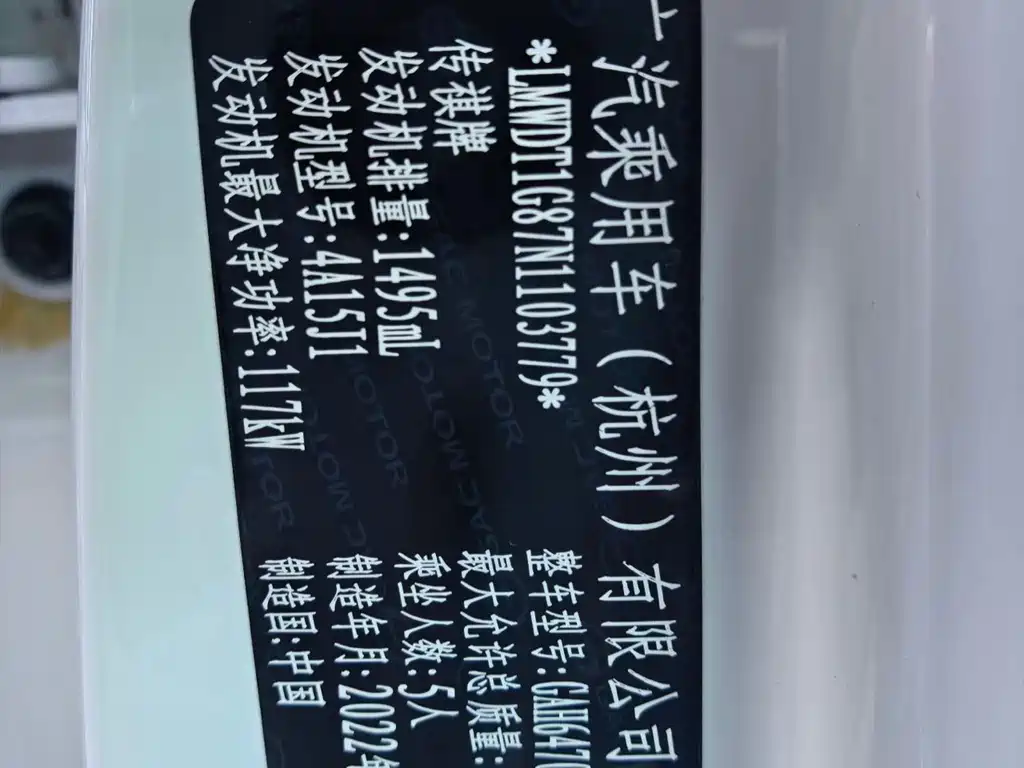 汽乘用车(杭州)有限公司
*LMWDT1G87N1103779*
整车型号:GAH6470
传祺牌
最大允许总质量:
发动机排量:1495mL
乘坐人数:5人
发动机型号:4A15J1
制造年月:2022年
发动机最大净功率:117kW
制造国:中国